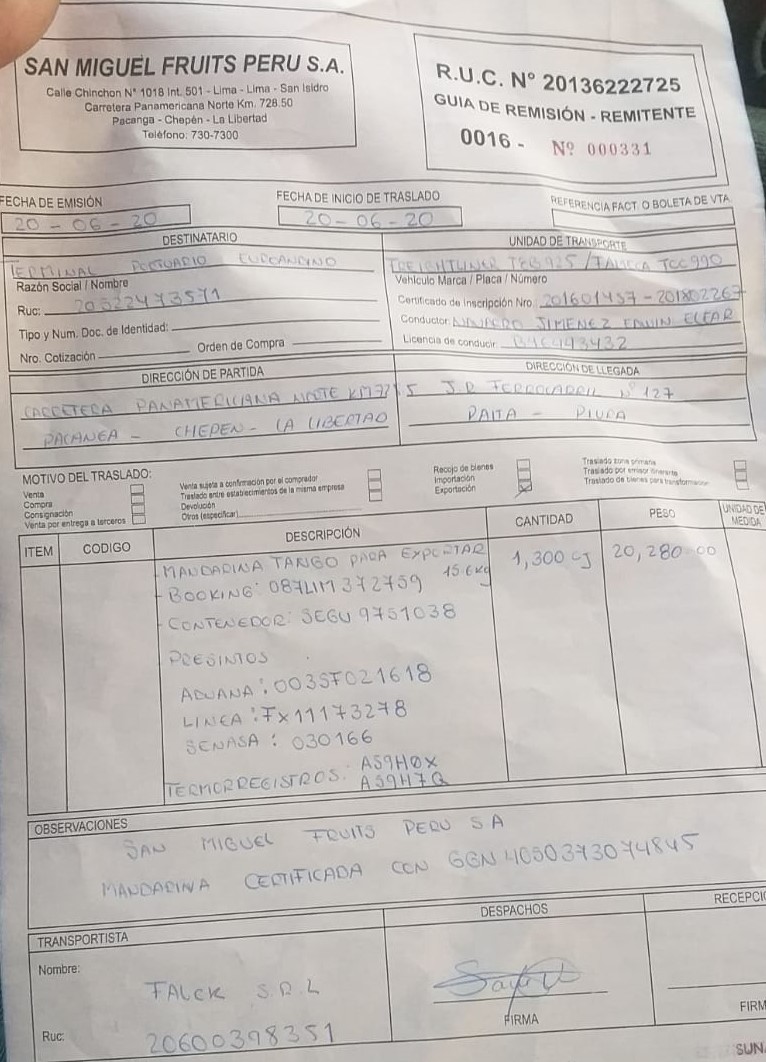 SAN MIGUEL FRUITS PERU S.A.
Calle Chinchon N° 1018 Int. 501 - Lima - Lima - San Isidro
Carretera Panamericana Norte Km. 728.50
Pacanga - Chepén - La Libertad
Teléfono: 730-7300
R.U.C. N° 20136222725
GUIA DE REMISIÓN - REMITENTE
0016 - Nº 000331
FECHA DE EMISIÓN
20-06-20
FECHA DE INICIO DE TRASLADO
20-06-20
REFERENCIA FACT. O BOLETA DE VTA.
DESTINATARIO
TERMINAL PORTUARIO EUROANDINO
Razón Social / Nombre
Ruc: 20522473571
Tipo y Num. Doc. de Identidad:
Nro. Cotización Orden de Compra
UNIDAD DE TRANSPORTE
FREIGHTLINER 925 / TCC990
Vehículo Marca / Placa / Número
Certificado de Inscripción Nro. 201601457 - 201802267
Conductor: NAVARRO JIMENEZ EDWIN
Licencia de conducir. B46493432
DIRECCIÓN DE PARTIDA
CARRETERA PANAMERICANA NORTE
PACANGA - CHEPEN - LA LIBERTAD
DIRECCIÓN DE LLEGADA
J.R FERROCARRIL N° 127
PAITA - PIURA
MOTIVO DEL TRASLADO:
Venta
Compra
Consignación
Venta por entrega a terceros
Venta sujeta a confirmación por el comprador
Traslado entre establecimientos de la misma empresa
Devolución
Otros (especificar)
Recojo de bienes
Importación
Exportación
Traslado zona primaria
Traslado por emisor itinerante
Traslado de bienes para transformación
ITEM CODIGO DESCRIPCIÓN CANTIDAD PESO UNIDAD DE MEDIDA
MANDARINA TANGO PARA EXPORTAR 1,300 CJ 20,280.00
15.6Kg
- BOOKING: 087LIM372759
- CONTENEDOR: SEGU 9751038
PRESINTOS
ADUANA: 003SF021618
LINEA: FX11173278
SENASA: 030166
TERMORREGISTROS: AS9H0X
AS9H7Q
OBSERVACIONES
SAN MIGUEL FRUITS PERU S A
MANDARINA CERTIFICADA CON GGN 4050373074845
TRANSPORTISTA
DESPACHOS
RECEPCIO
Nombre:
FALCK S.R.L
Ruc: 20600398351
FIRMA
FIRM
SUNA